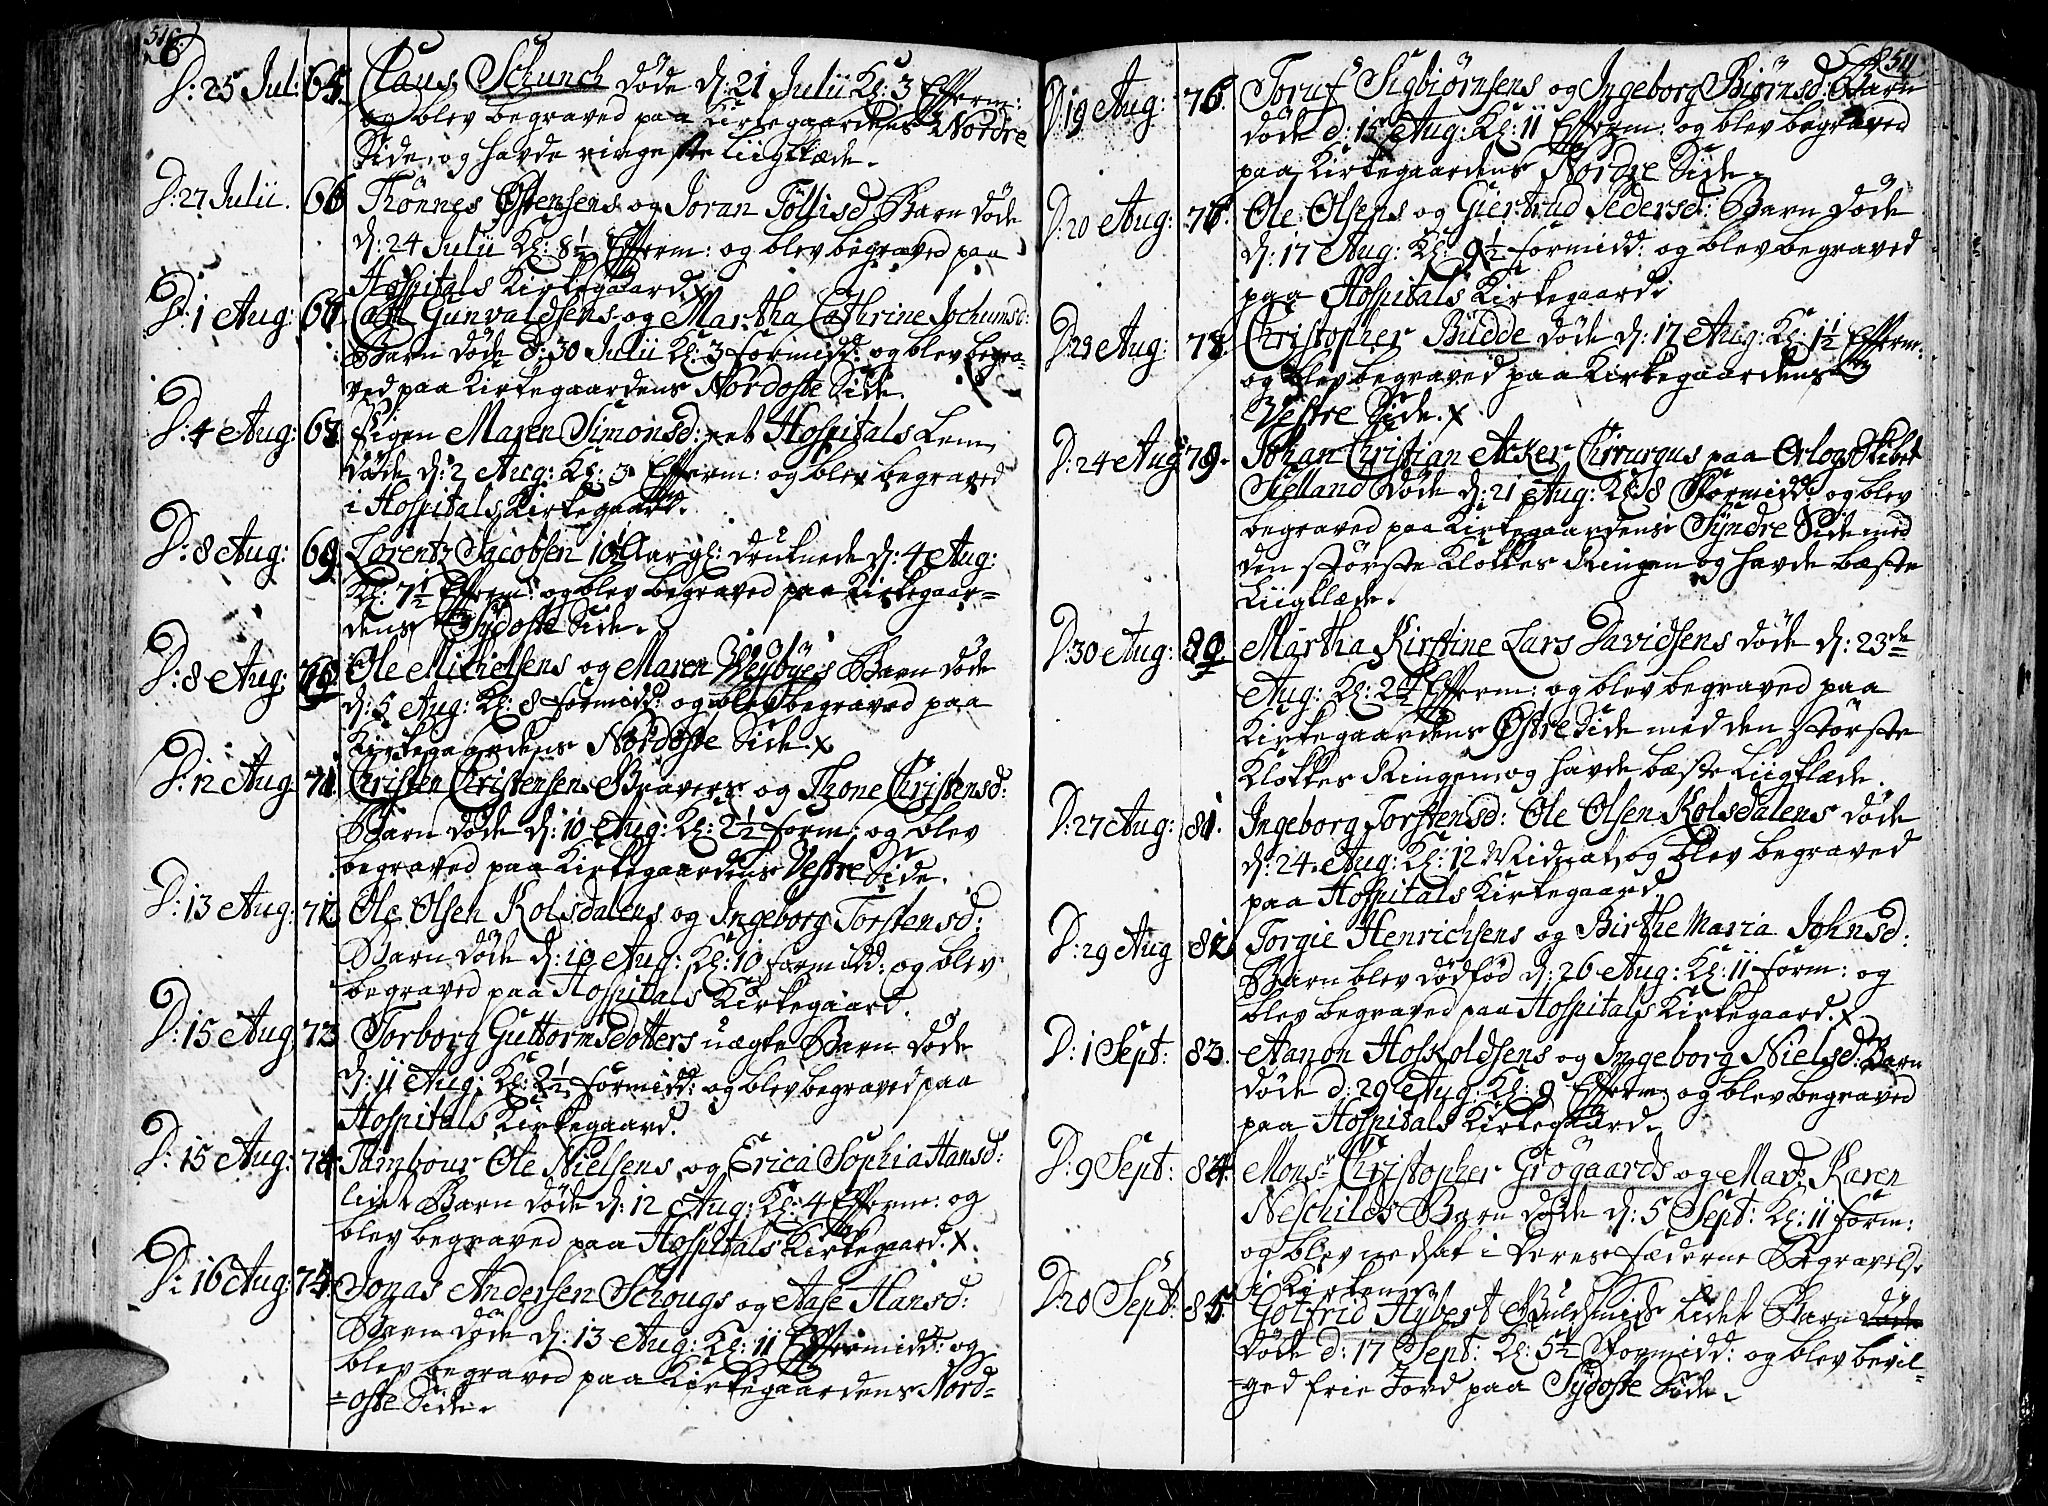 510.
D: 25 Jul: 65. Claus Schunch døde d: 21 Julii Kl: 3 Efterm:
og blev begraved paa Kirkegaardens Nordre
Side, og havde ringeste Liigklæde.
D: 27 Julii. 66 Thönnes Östensens og Joran Töllisd. Barn døde
d: 24 Julii Kl: 8½ Efterm: og blev begraved paa
Hospitals Kirkegaard. x
D: 1 Aug: 67 Gunvaldsens og Martha Cathrine Jochumsd:
Barn døde d: 30 Julii Kl: 3 formidd: og blev begra-
ved paa Kirkegaardens Nordoste Side.
D: 4 Aug: 68. Pigen Maren Simonsd: et Hospitals Lem
døde d: 2 Aug: Kl: 3 Efterm: og blev begraved
i Hospitals Kirkegaard.
D: 8 Aug: 69. Lorentz Jacobsen 10 Aar gl: druknede d: 4 Aug:
Kl: 7½ Efterm: og blev begraved paa Kirkegaar=
dens Sydoste Side.
D: 8 Aug: Ole Michelsens og Maren Weybye's Barn døde
d: 5 Aug: Kl: 8 formidd: og blev begraved paa
Kirkegaardens Nordoste Side. x
D: 12 Aug 71 Christen Christensens Gravers og Thone Christensd:
Barn døde d: 10 Aug: Kl: 2½ form: og blev
begraved paa Kirkegaardens Vestre Side.
D: 13 Aug: 72 Ole Olsen Kolsdalens og Ingeborg Torstensd:
Barn døde d: 10 Aug: Kl: 10 formidd: og blev
begraved paa Hospitals Kirkegaard.
D: 15 Aug 73 Torborg Guttormsdotters uægte Barn døde
d: 11 Aug: Kl: 2½ formidd: og blev begraved paa
Hospitals Kirkegaard.
D: 15 Aug: 74 Tambour Ole Nielsens og Erica Sophia Hansd:
lidet Barn døde d: 12 Aug: Kl: 4 Efterm: og
blev begraved paa Hospitals Kirkegaard. x.
D: 16 Aug: 75 Jonas Andersen Schougs og Aase Hansd:
Barn døde d: 13 Aug: Kl: 11 Eftermidd: og
blev begraved paa Kirkegaardens Nord=
=oste Side.
511
D: 19 Aug: 76. Toruf Sigbiörnsens og Ingeborg Biörnsd: Barn
døde d: 15 Aug: Kl: 11 Efterm: og blev begraved
paa Kirkegaardens Nordre Side.
D: 20 Aug: 76. Ole Olsens og Giertrud Pedersd: Barn døde
d: 17 Aug: Kl: 9½ formidd: og blev begraved
paa Hospitals Kirkegaard.
D: 23 Aug: 78. Christopher Budde døde d: 17 Aug: Kl: 1½ Efterm:
og blev begraved paa Kirkegaardens
Vestre Side. x
D: 24 Aug 79. Johan Christian Acker Chirurgus paa Orlog Skibet
Sielland døde d: 21 Aug: Kl: 8 Formidd: og blev
begraved paa Kirkegaardens Syndre Side med
den störste Klokkes Ringen og havde bæste
Liigklæde.
D: 30 Aug: 80. Martha Kirstine Lars Davidsens døde d: 23de
Aug: Kl: 2½ Efterm: og blev begraved paa
Kirkegaardens Östre Side med den störste
Klokkes Ringen, og havde bæste Liigklæde.
D: 27 Aug: 81. Ingeborg Torstensd: Ole Olsen Kolsdalens døde
d: 24. Aug: Kl: 12 Midnat, og blev begraved
paa Hospitals Kirkegaard
D: 29 Aug 82 Torgie Henrichsens og Birthe Maria Johnsd:
Barn blev dödföd d: 26 Aug: Kl: 11 form: og
blev begraved paa Hospitals Kirkegaard. x
D: 1 Sept: 83. Aanon Hoskoldsens og Ingeborg Nielsd: Barn
døde d: 29 Aug: Kl: 9 Efterm: og blev begraved
paa Hospitals Kirkegaard.
D: 9 Sept: 84. Monsr Christopher Grögaards og Mad: Karen
Neschilds Barn døde d: 5 Sept: Kl: 11 form:
og blev nedsat i deres fæderne Begravelse
i Kirken
D: 20 Sept: 85. Gotfrid Hybert Guldsmids lidet Barn døde
døde d: 17 Sept: Kl: 5½ Formidd: og blev bevil-
=ged frie Jord paa Sydoste Side.